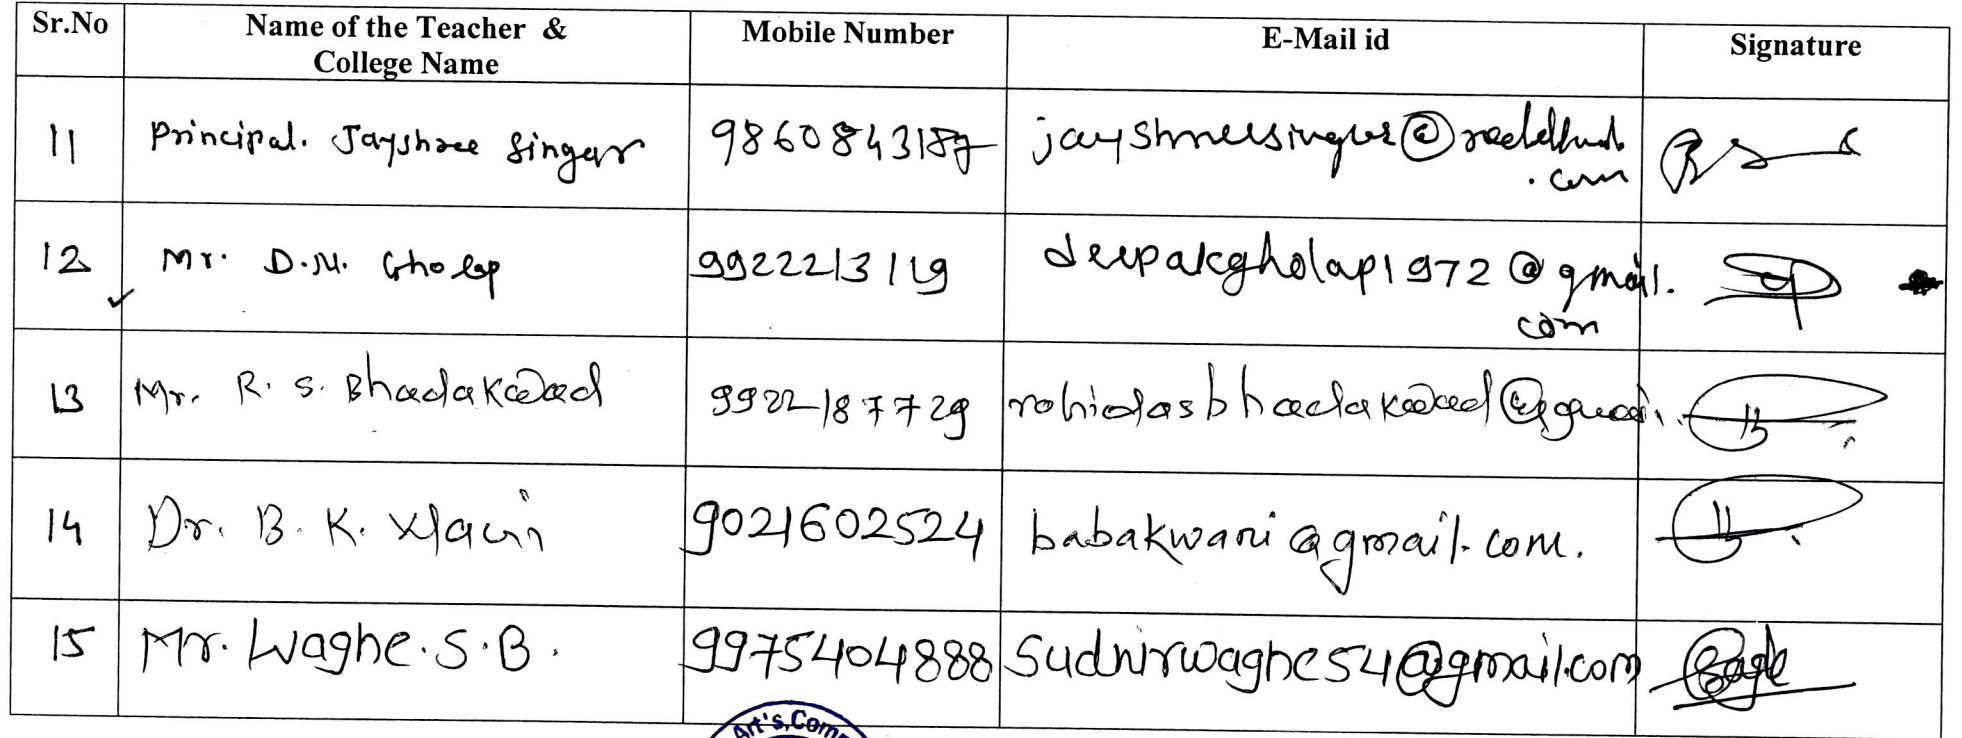 Sr.No Name of the Teacher & College Name Mobile Number E-Mail id Signature
11 Principal. Jayshree Singar 9860843187 jayshreesingar@rediffmail
.com
12 Mr. D.M. Gholap 9922213119 deepakgholap1972@gmail.
com
13 Mr. R. S. Bhadakwad 9922187729
14 Dr. B. K. Wani 9021602524 babakwani@gmail.com.
15 Mr. Waghe.S.B. 9975404888 Sudhirwaghe54@gmail.com
Art's, Com